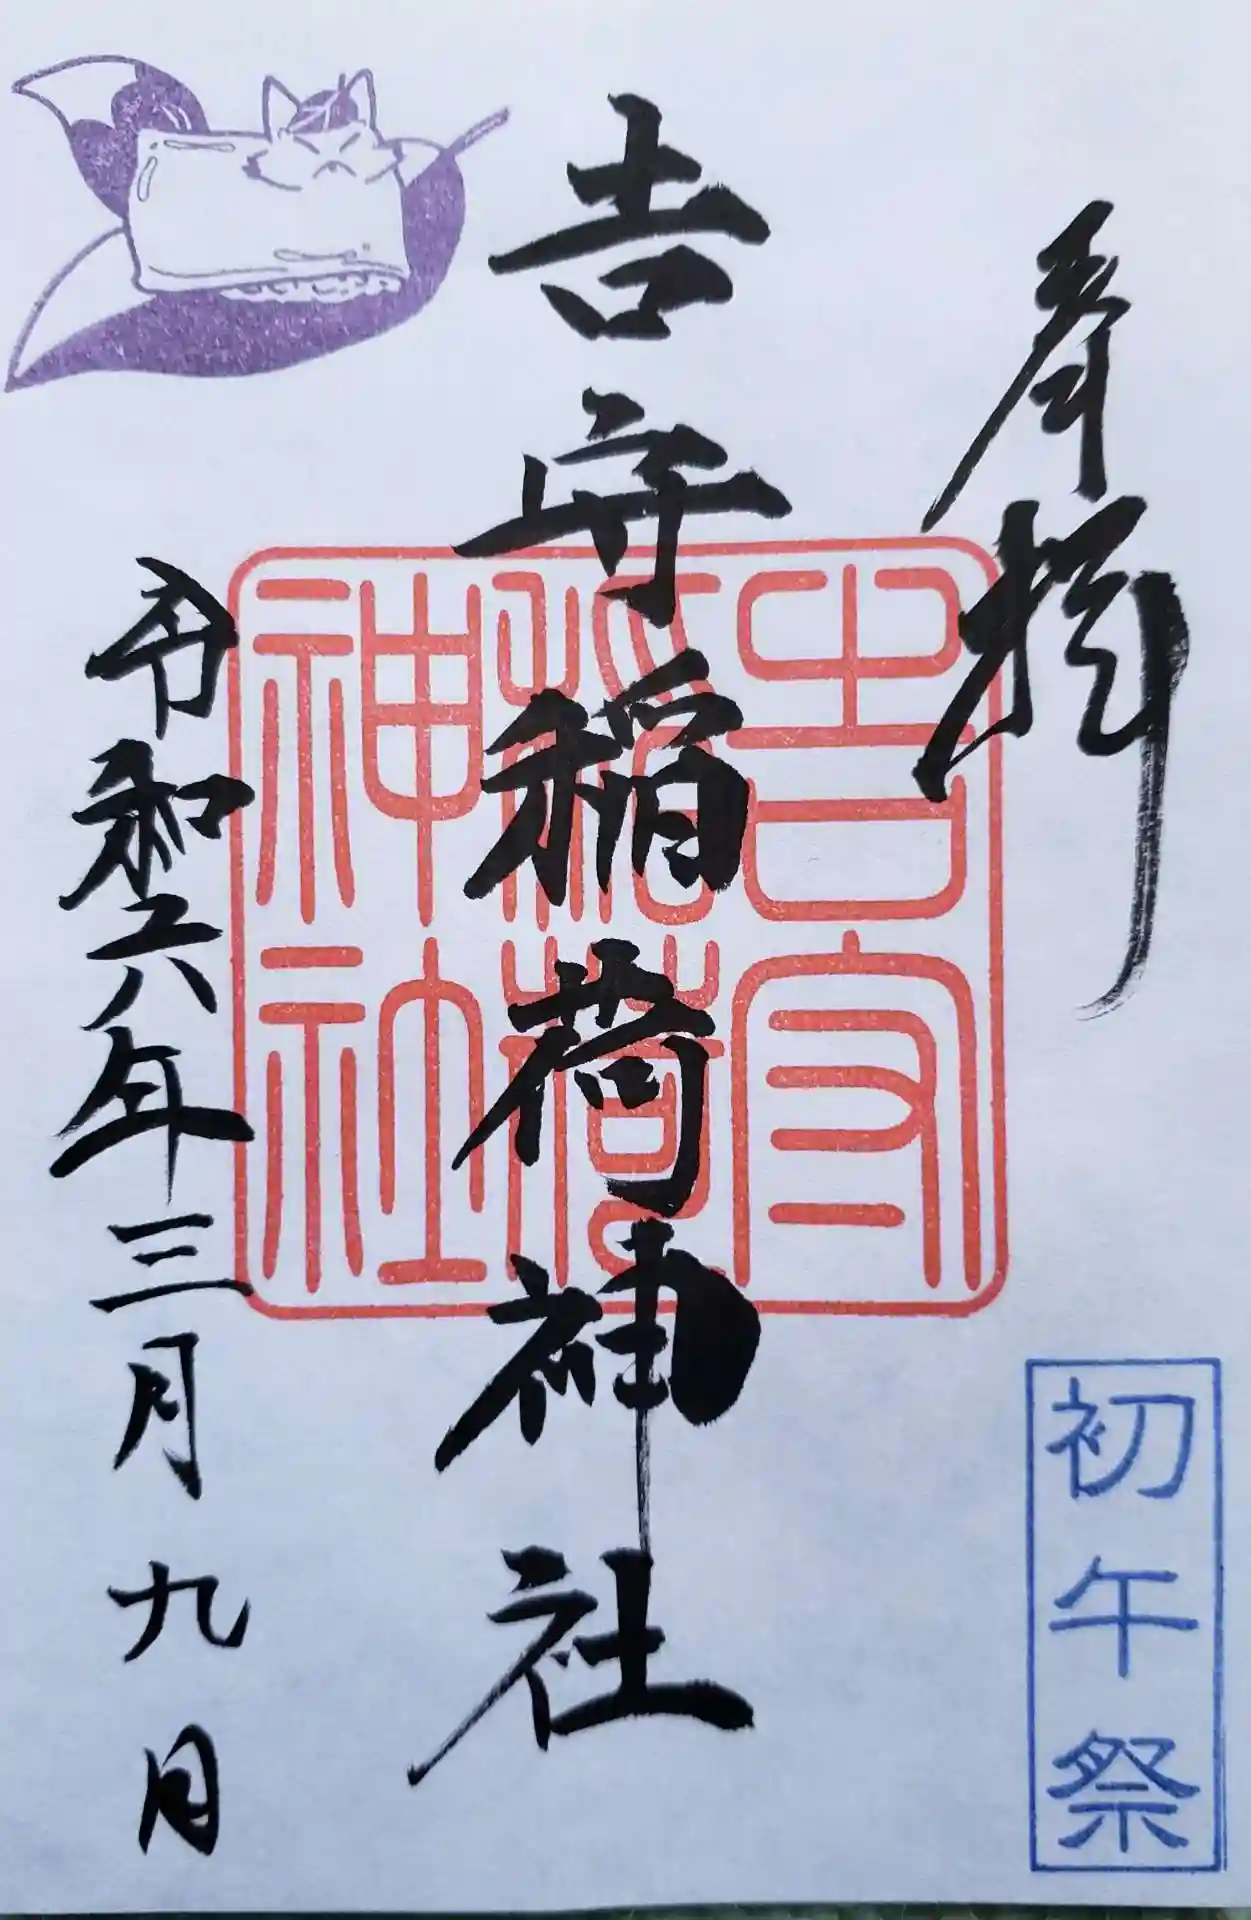 奉拝
初午祭
吉守稲荷神社
吉守稲荷神社
令和六年三月九日